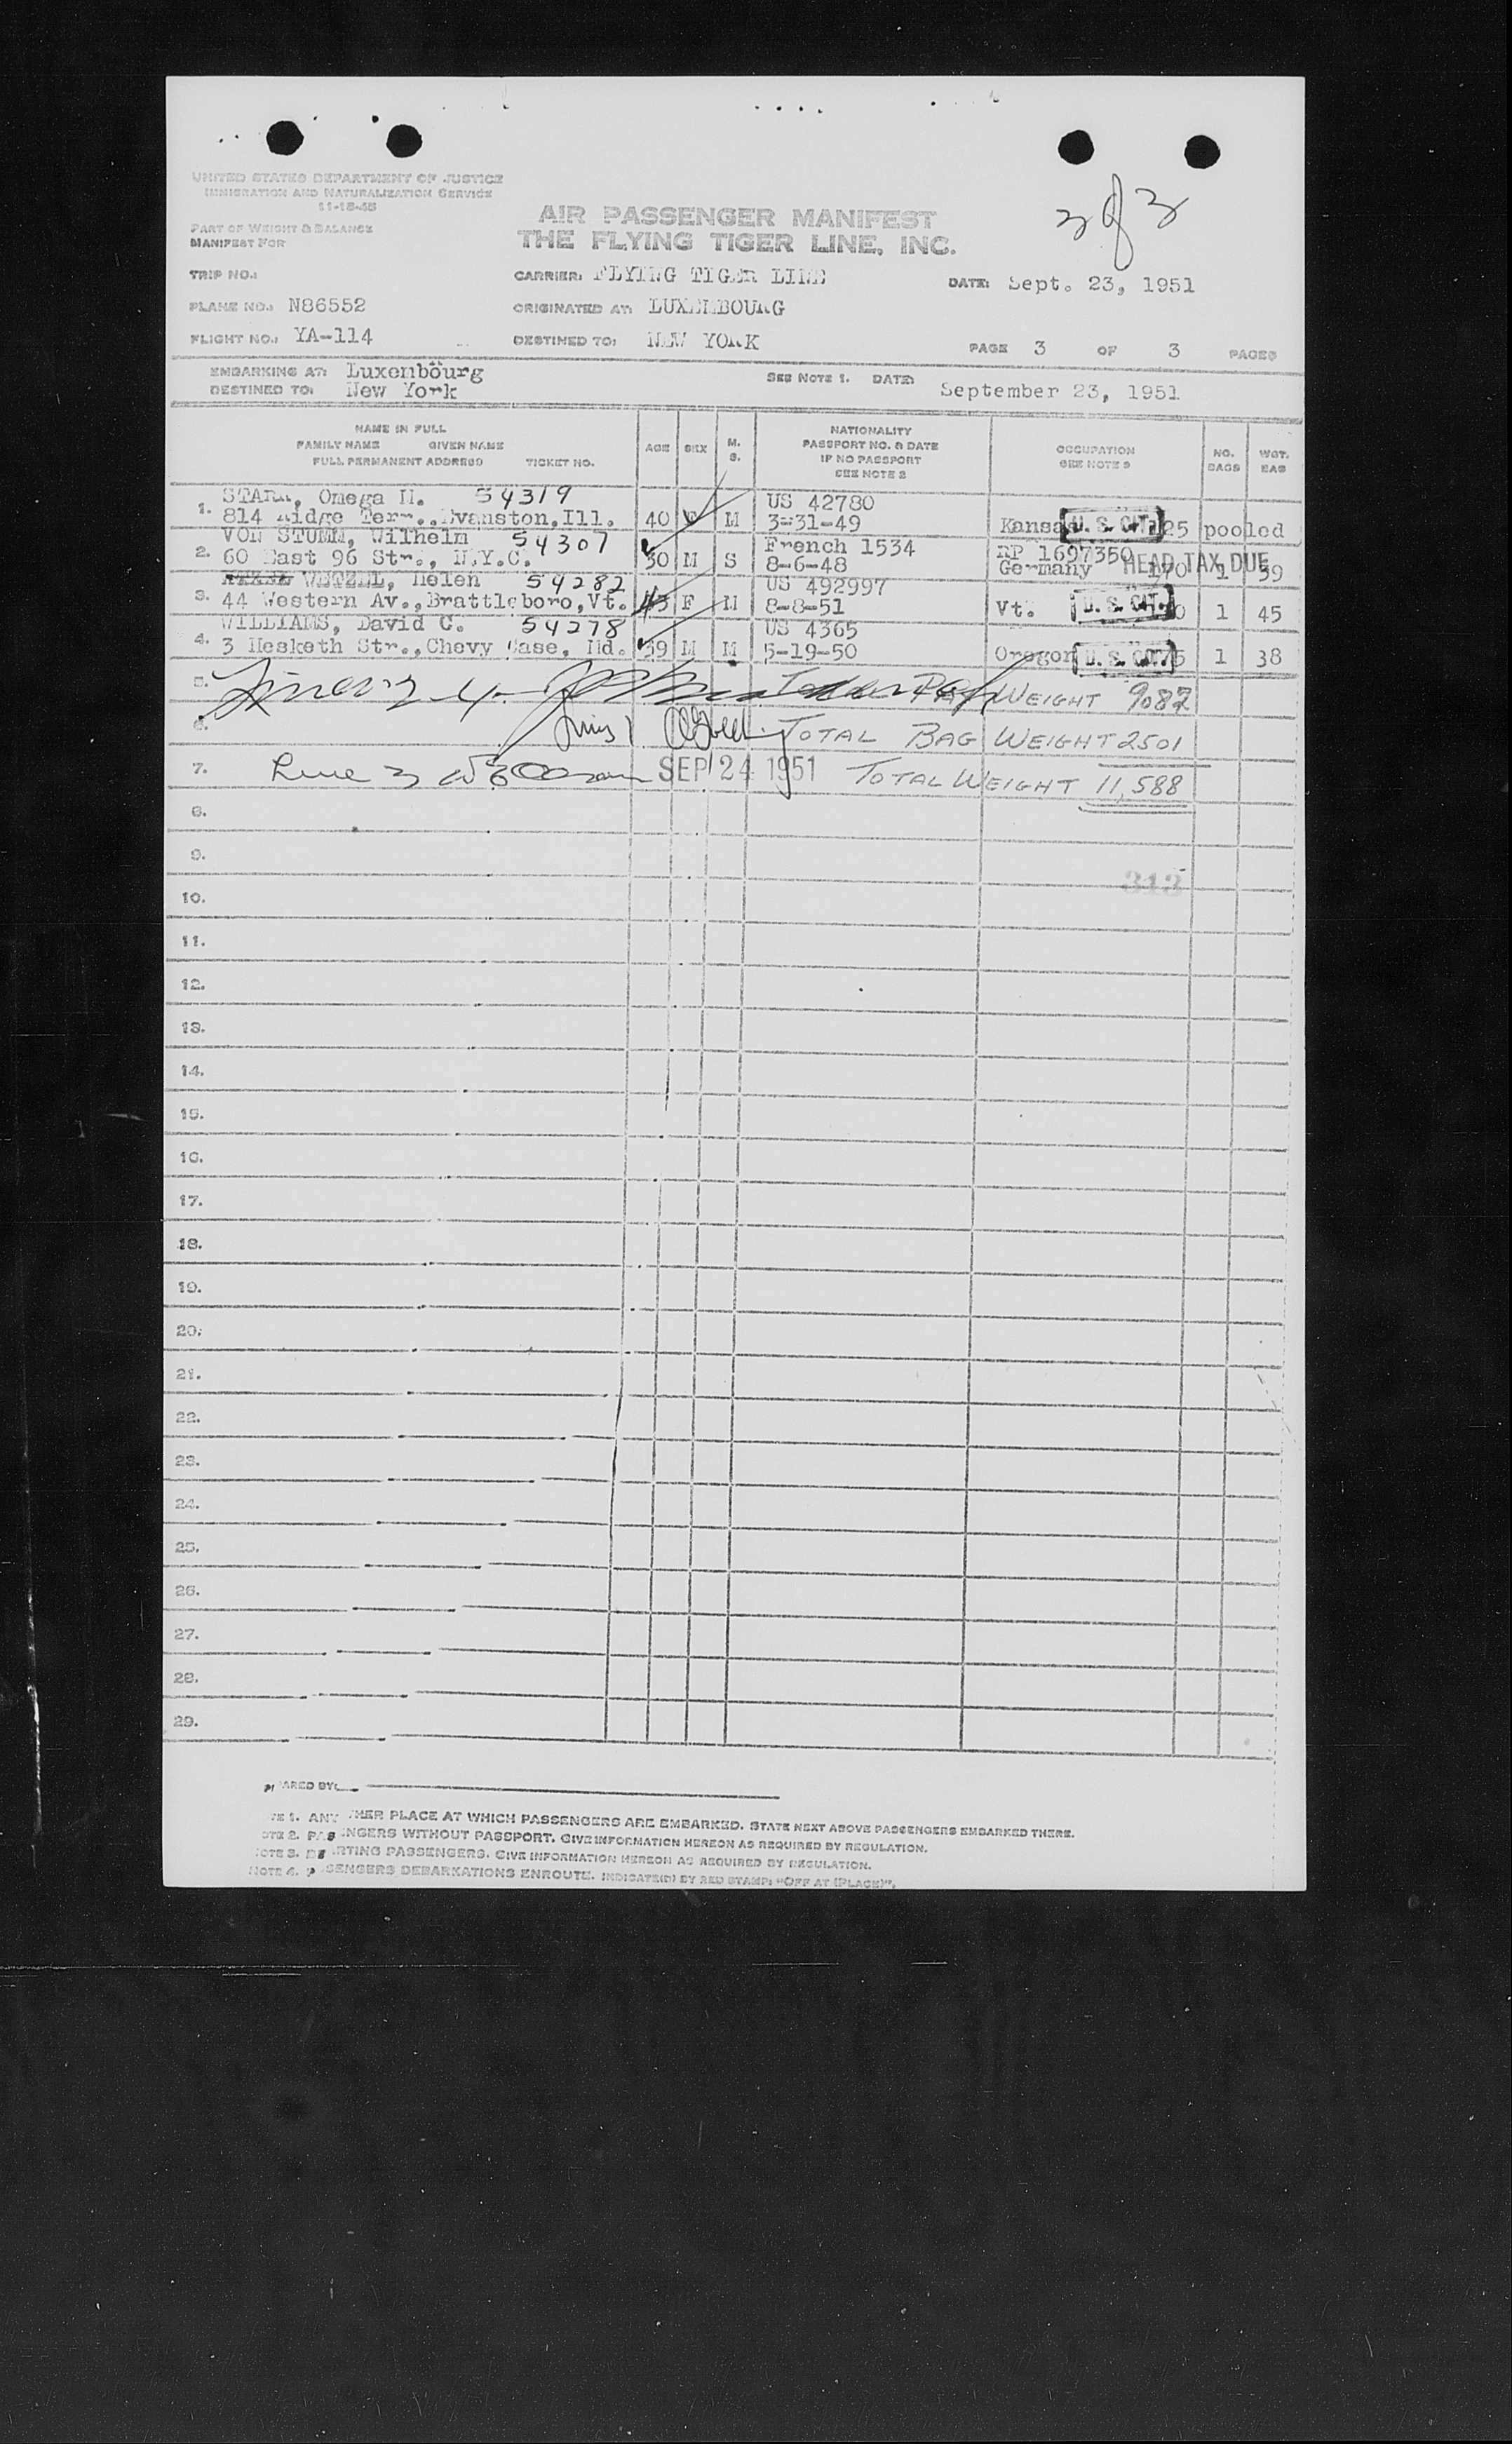 UNITED STATES DEPARTMENT OF JUSTICE
IMMIGRATION AND NATURALIZATION SERVICE
11-15-45
PART OF WEIGHT & BALANCE
MANIFEST FOR
3 of 3
AIR PASSENGER MANIFEST
THE FLYING TIGER LINE, INC.
TRIP NO.: CARRIER: FLYING TIGER LINE DATE: Sept. 23, 1951
PLANE NO.: N86552 ORIGINATED AT: LUXEMBOURG
FLIGHT NO.: YA-114 DESTINED TO: NEW YORK PAGE 3 OF 3 PAGES
EMBARKING AT: Luxenbourg SEE NOTE 1. DATE: September 23, 1951
DESTINED TO: New York
NAME IN FULL
FAMILY NAME GIVEN NAME
FULL PERMANENT ADDRESS TICKET NO.
AGE SEX M. S.
NATIONALITY
PASSPORT NO. & DATE
IF NO PASSPORT
SEE NOTE 2
OCCUPATION
SEE NOTE 3
NO. BAGS
WGT. BAG
STARR, Omega H. 54319 US 42780
1. 814 Ridge Terr., Evanston, Ill. 40 F M 3-31-49 Kansas U. S. CIT. 125 pooled
VON STUMM, Wilhelm 54307 French 1534 RP 1697350 HEAD TAX DUE
2. 60 East 96 Str., N.Y.C. 30 M S 8-6-48 Germany 170 1 39
WETZEL, Helen 54282 US 492997
3. 44 Western Av., Brattleboro, Vt. 45 F M 8-8-51 Vt. U. S. CIT. 1 45
WILLIAMS, David C. 54278 US 4365
4. 3 Hesketh Str., Chevy Case, Md. 39 M M 5-19-50 Oregon U. S. CIT. 175 1 38
5. WEIGHT 9087
6. TOTAL BAG WEIGHT 2501
7. SEP 24 1951 TOTAL WEIGHT 11,588
8.
9.
313
10.
11.
12.
13.
14.
15.
16.
17.
18.
19.
20.
21.
22.
23.
24.
25.
26.
27.
28.
29.
ARED BY:
TE 1. ANY THER PLACE AT WHICH PASSENGERS ARE EMBARKED. STATE NEXT ABOVE PASSENGERS EMBARKED THERE.
OTE 2. PAS NGERS WITHOUT PASSPORT. GIVE INFORMATION HEREON AS REQUIRED BY REGULATION.
NOTE 3. DE RTING PASSENGERS. GIVE INFORMATION HEREON AS REQUIRED BY REGULATION.
NOTE 4. P SENGERS DEBARKATIONS ENROUTE. INDICATE(D) BY RED STAMP: "OFF AT (PLACE)".